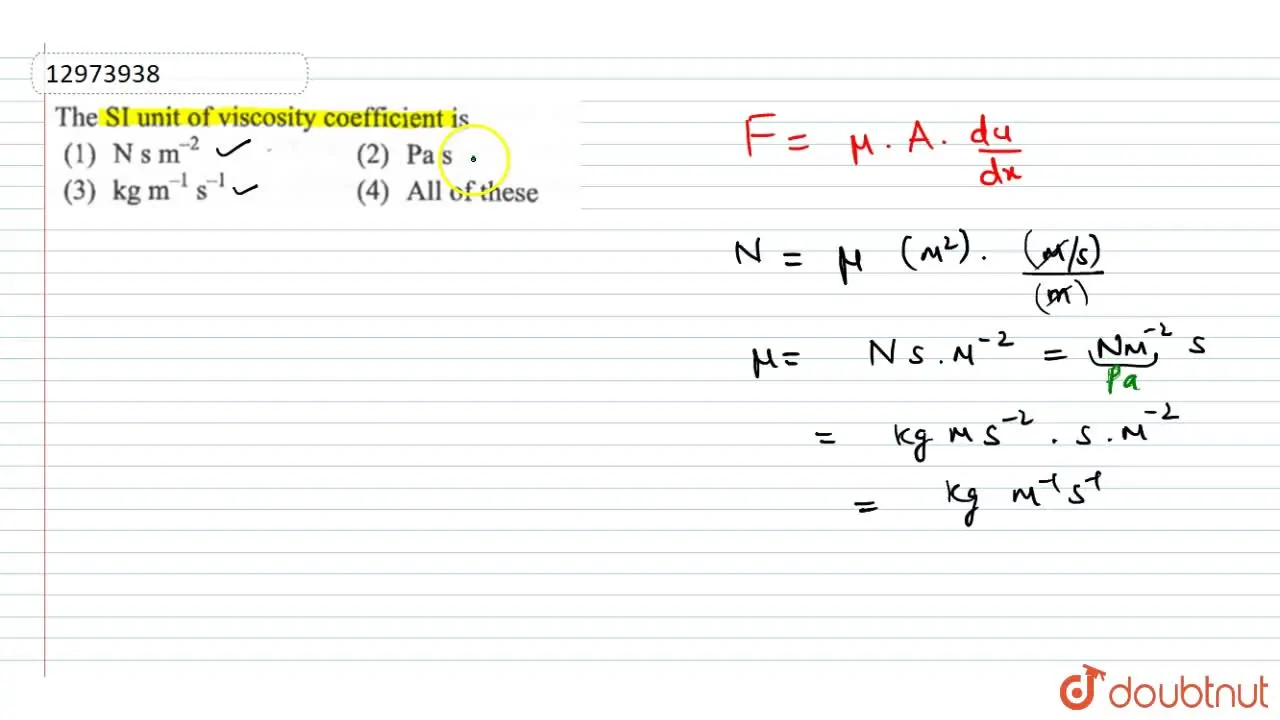 12973938
The SI unit of viscosity coefficient is
(1) N s m⁻² ✓ (2) Pa s
(3) kg m⁻¹ s⁻¹ ✓ (4) All of these
F = μ . A . du/dx
N = μ (m²) . (m/s)/(m)
μ = N s . m⁻² = Nm⁻² s
Pa
= kg m s⁻² . s . m⁻²
= kg m⁻¹ s⁻¹
doubtnut